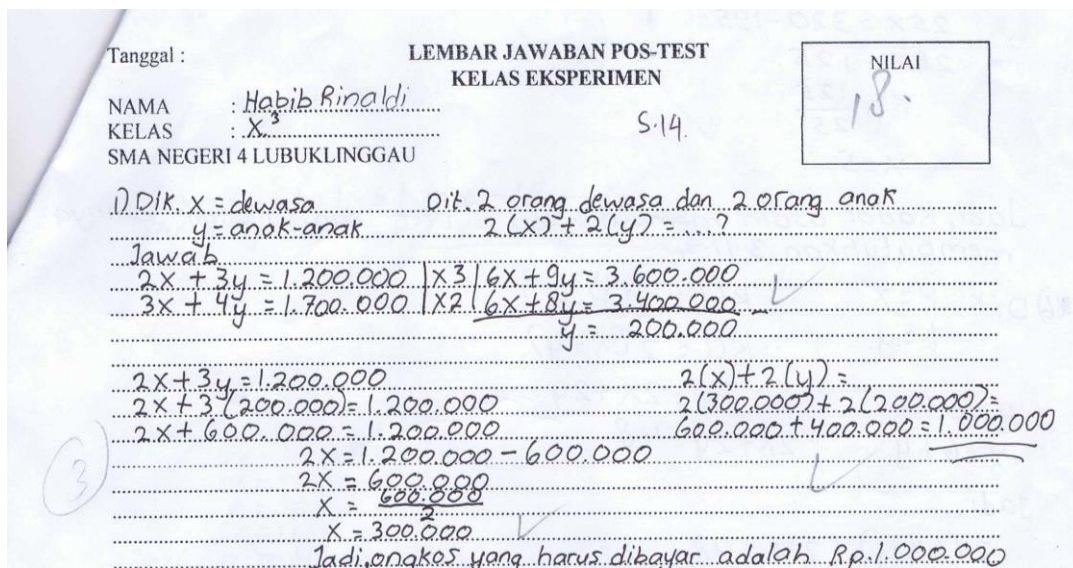 Tanggal :
LEMBAR JAWABAN POS-TEST
KELAS EKSPERIMEN
NILAI
18.
NAMA : Habib Rinaldi
KELAS : X³
S.14.
SMA NEGERI 4 LUBUKLINGGAU
1) Dik. x = dewasa Dit. 2 orang dewasa dan 2 orang anak
y = anak-anak 2(x) + 2(y) = ...?
Jawab
2x + 3y = 1.200.000 |x3| 6x + 9y = 3.600.000
3x + 4y = 1.700.000 |x2| 6x + 8y = 3.400.000 -
y = 200.000
2x + 3y = 1.200.000
2x + 3(200.000) = 1.200.000
2x + 600.000 = 1.200.000
2x = 1.200.000 - 600.000
2x = 600.000
x = 600.000/2
x = 300.000
2(x) + 2(y) =
2(300.000) + 2(200.000) =
600.000 + 400.000 = 1.000.000
3
Jadi, ongkos yang harus dibayar adalah Rp.1.000.000